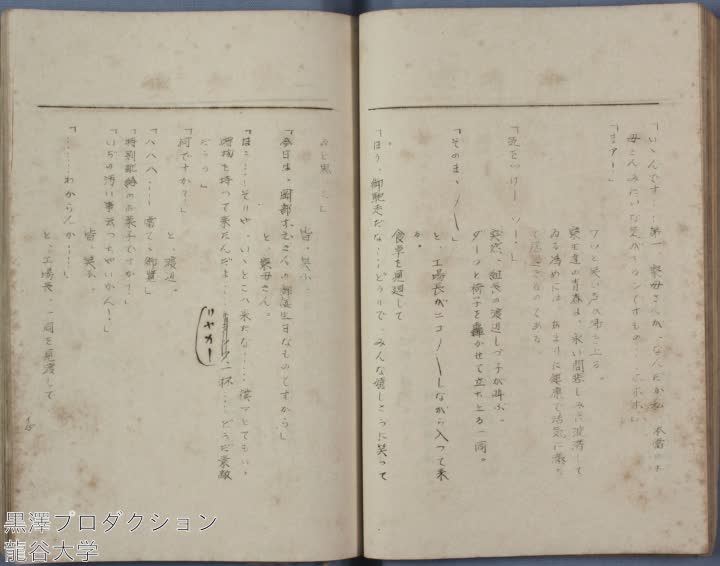 「いゝんです……第一 寮母さんが、なんだか私 本当のお
母さんみたいな気が するンですもの……ホホホ」
「まアー」
ワッと笑い声が湧き上る。
寮生達の青春は、永い間悲しみに沈滞して
ゐる為めには あまりに健康で活気に満ち
て ゐるのである。
「気をつけー ッ！」
突然、組長の渡辺しづ子が叫ぶ。
ダーッと椅子を轟かせて立ち上る一同。
「そのまゝ〳〵」
と、工場長がニコ〳〵しながら入って来
る。
食卓を見廻して
「ほう、御馳走だな……どうりで、みんな嬉しさうに笑って
ゐると思った」
皆、笑ふ。
「今日は、岡部すえさんの御誕生日なものですから」
と、寮母さん。
「ほう……そりや、いゝとこへ来たな……僕ァとてもいゝ
贈物を持って来たんだよ……リヤカー一杯……どうだ素敵
だらう」
「何ですか？」
と、渡辺。
「ハハハ……当てゝ御覧」
「特別配給のお菓子ですか？」
「いぢの汚い事云っちやいかん！」
皆、笑ふ。
「……わからんか……」
と、工場長、一同を見渡して
黒澤プロダクション
龍谷大学